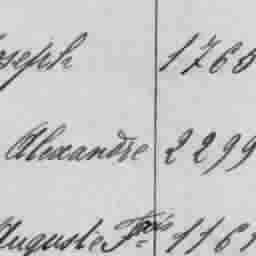 oseph 1765
Alexandre 2299
Auguste Fçois 1161